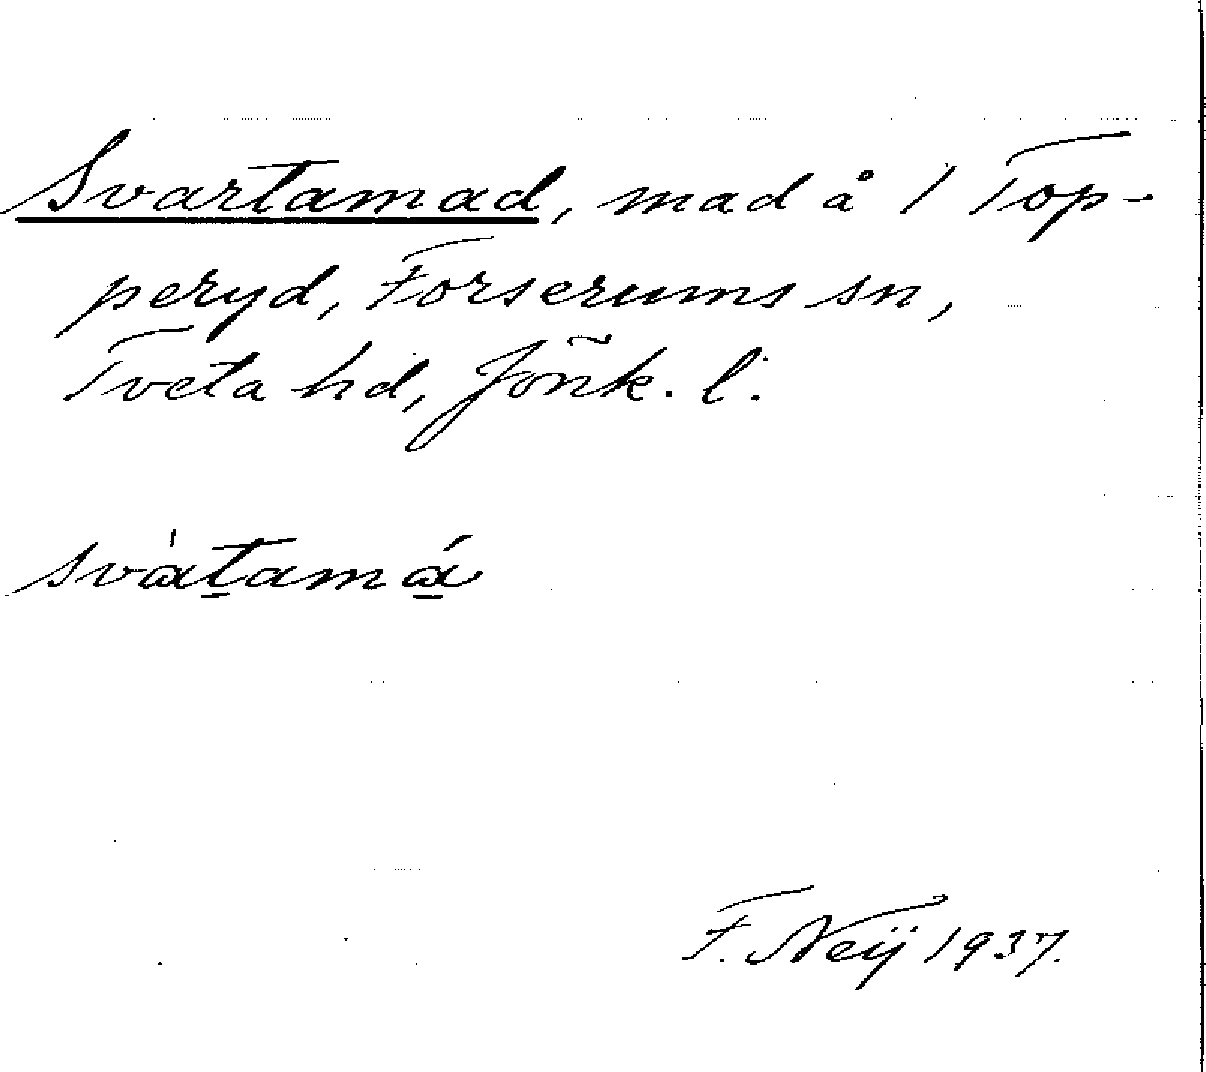 Svartamad, mad å 1 Top-
peryd, Forserums sn,
Tveta hd, Jönk. l.
svàtamá
F. Neij 1937.